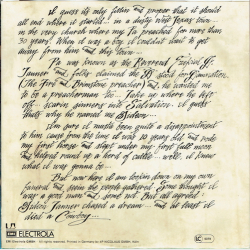 I guess it's only fittin' and proper that it should
all end where it started... in a dusty West Texas town
in the very church where my Pa preached for more than
30 years. When I was a boy I couldn't wait to get
away from them and they town
Pa was known as the Reverend
Tanner and folks claimed the Blood and
(The Fire and Brimstone preacher) he wanted me
to be a preacherman... Take up where he left
off... scarin' sinners into Salvation. I guess
that's why he named me Gideon.
I'm sure I musta been quite a disappointment
to him cause from the time I was 10 years old and rode
my first horse and slept under my first full moon
and helped round up a herd of cattle... well, I knew
what I was gonna be
But now here I am lookin' down on my own
funeral and seein' the people gathered. Some thought it
was a good man and some not. But all agreed
Gideon Tanner chased a dream - and he
died a Cowboy...
EMI ELECTROLA